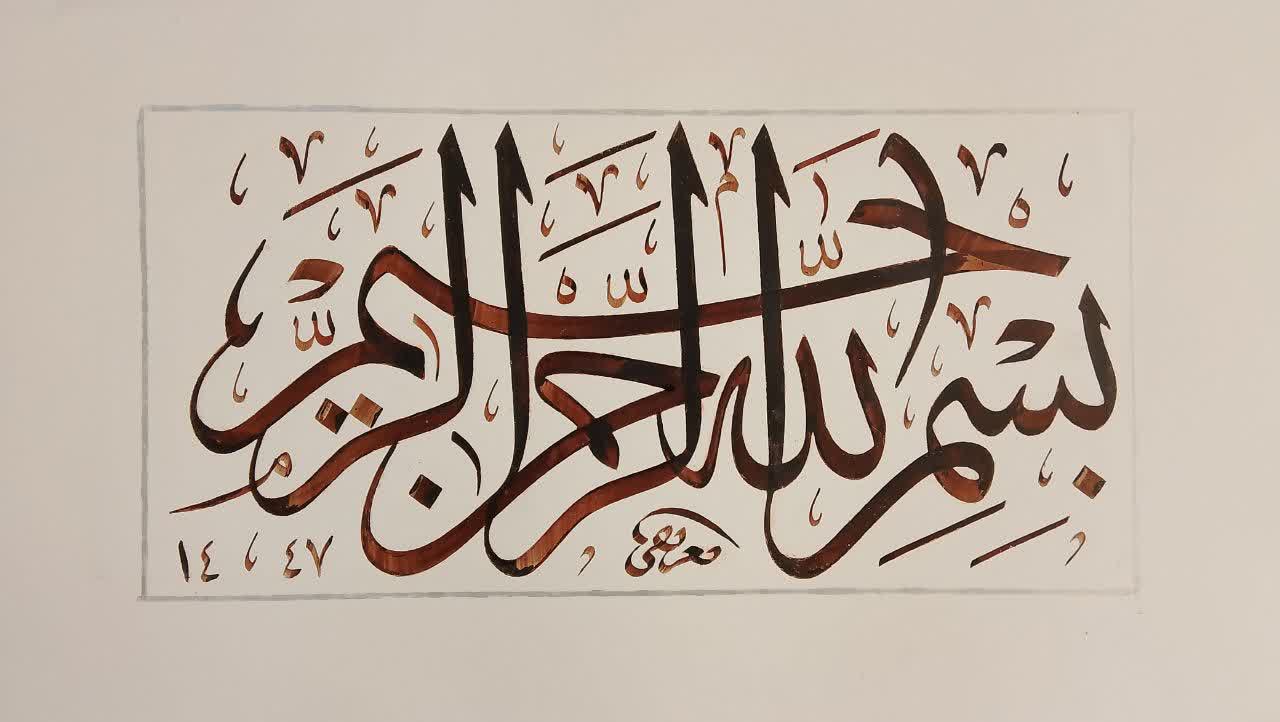 بِسْمِ اللّٰهِ الرَّحْمٰنِ الرَّحِيمِ
١٤٤٧